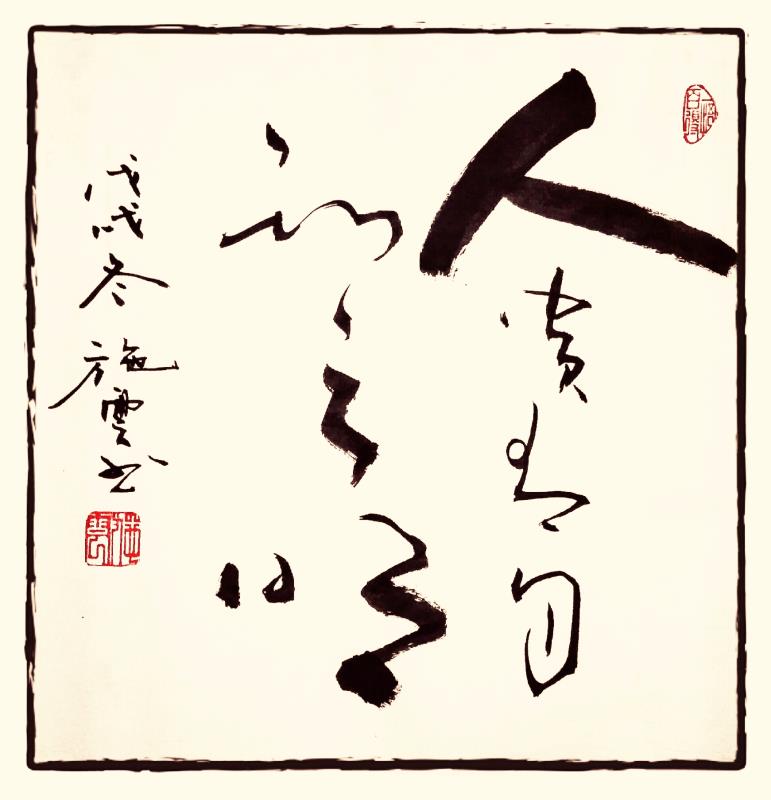 人貴有自
知之明
戊戌冬 施雲書
施雲